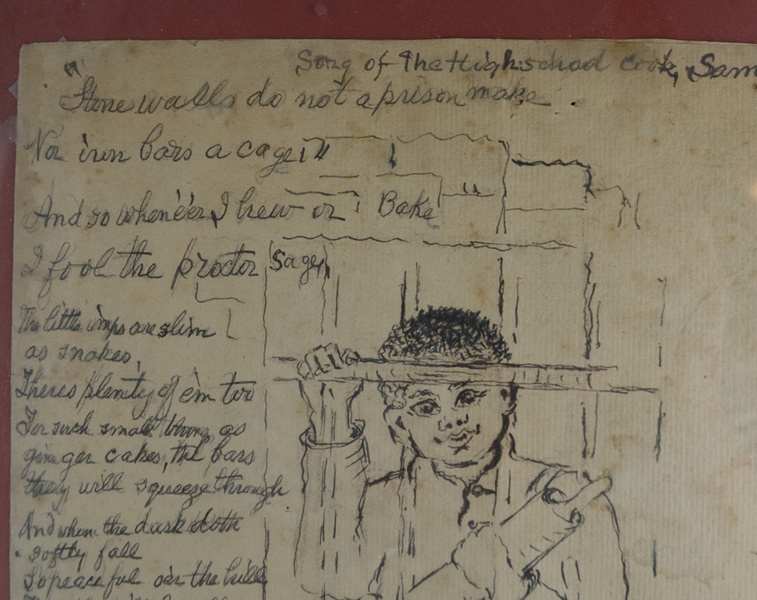 Song of the Highschool cook, Sam
"Stone walls do not a prison make
Nor iron bars a cage"
And so whene'er I brew or Bake
I fool the proctor Sage,
The little imps are slim
as snakes,
Theres plenty of em too
For such small things as
ginger cakes, the bars
they will squeeze through
And when the dusk doth
softly fall
So peaceful o'er the hills